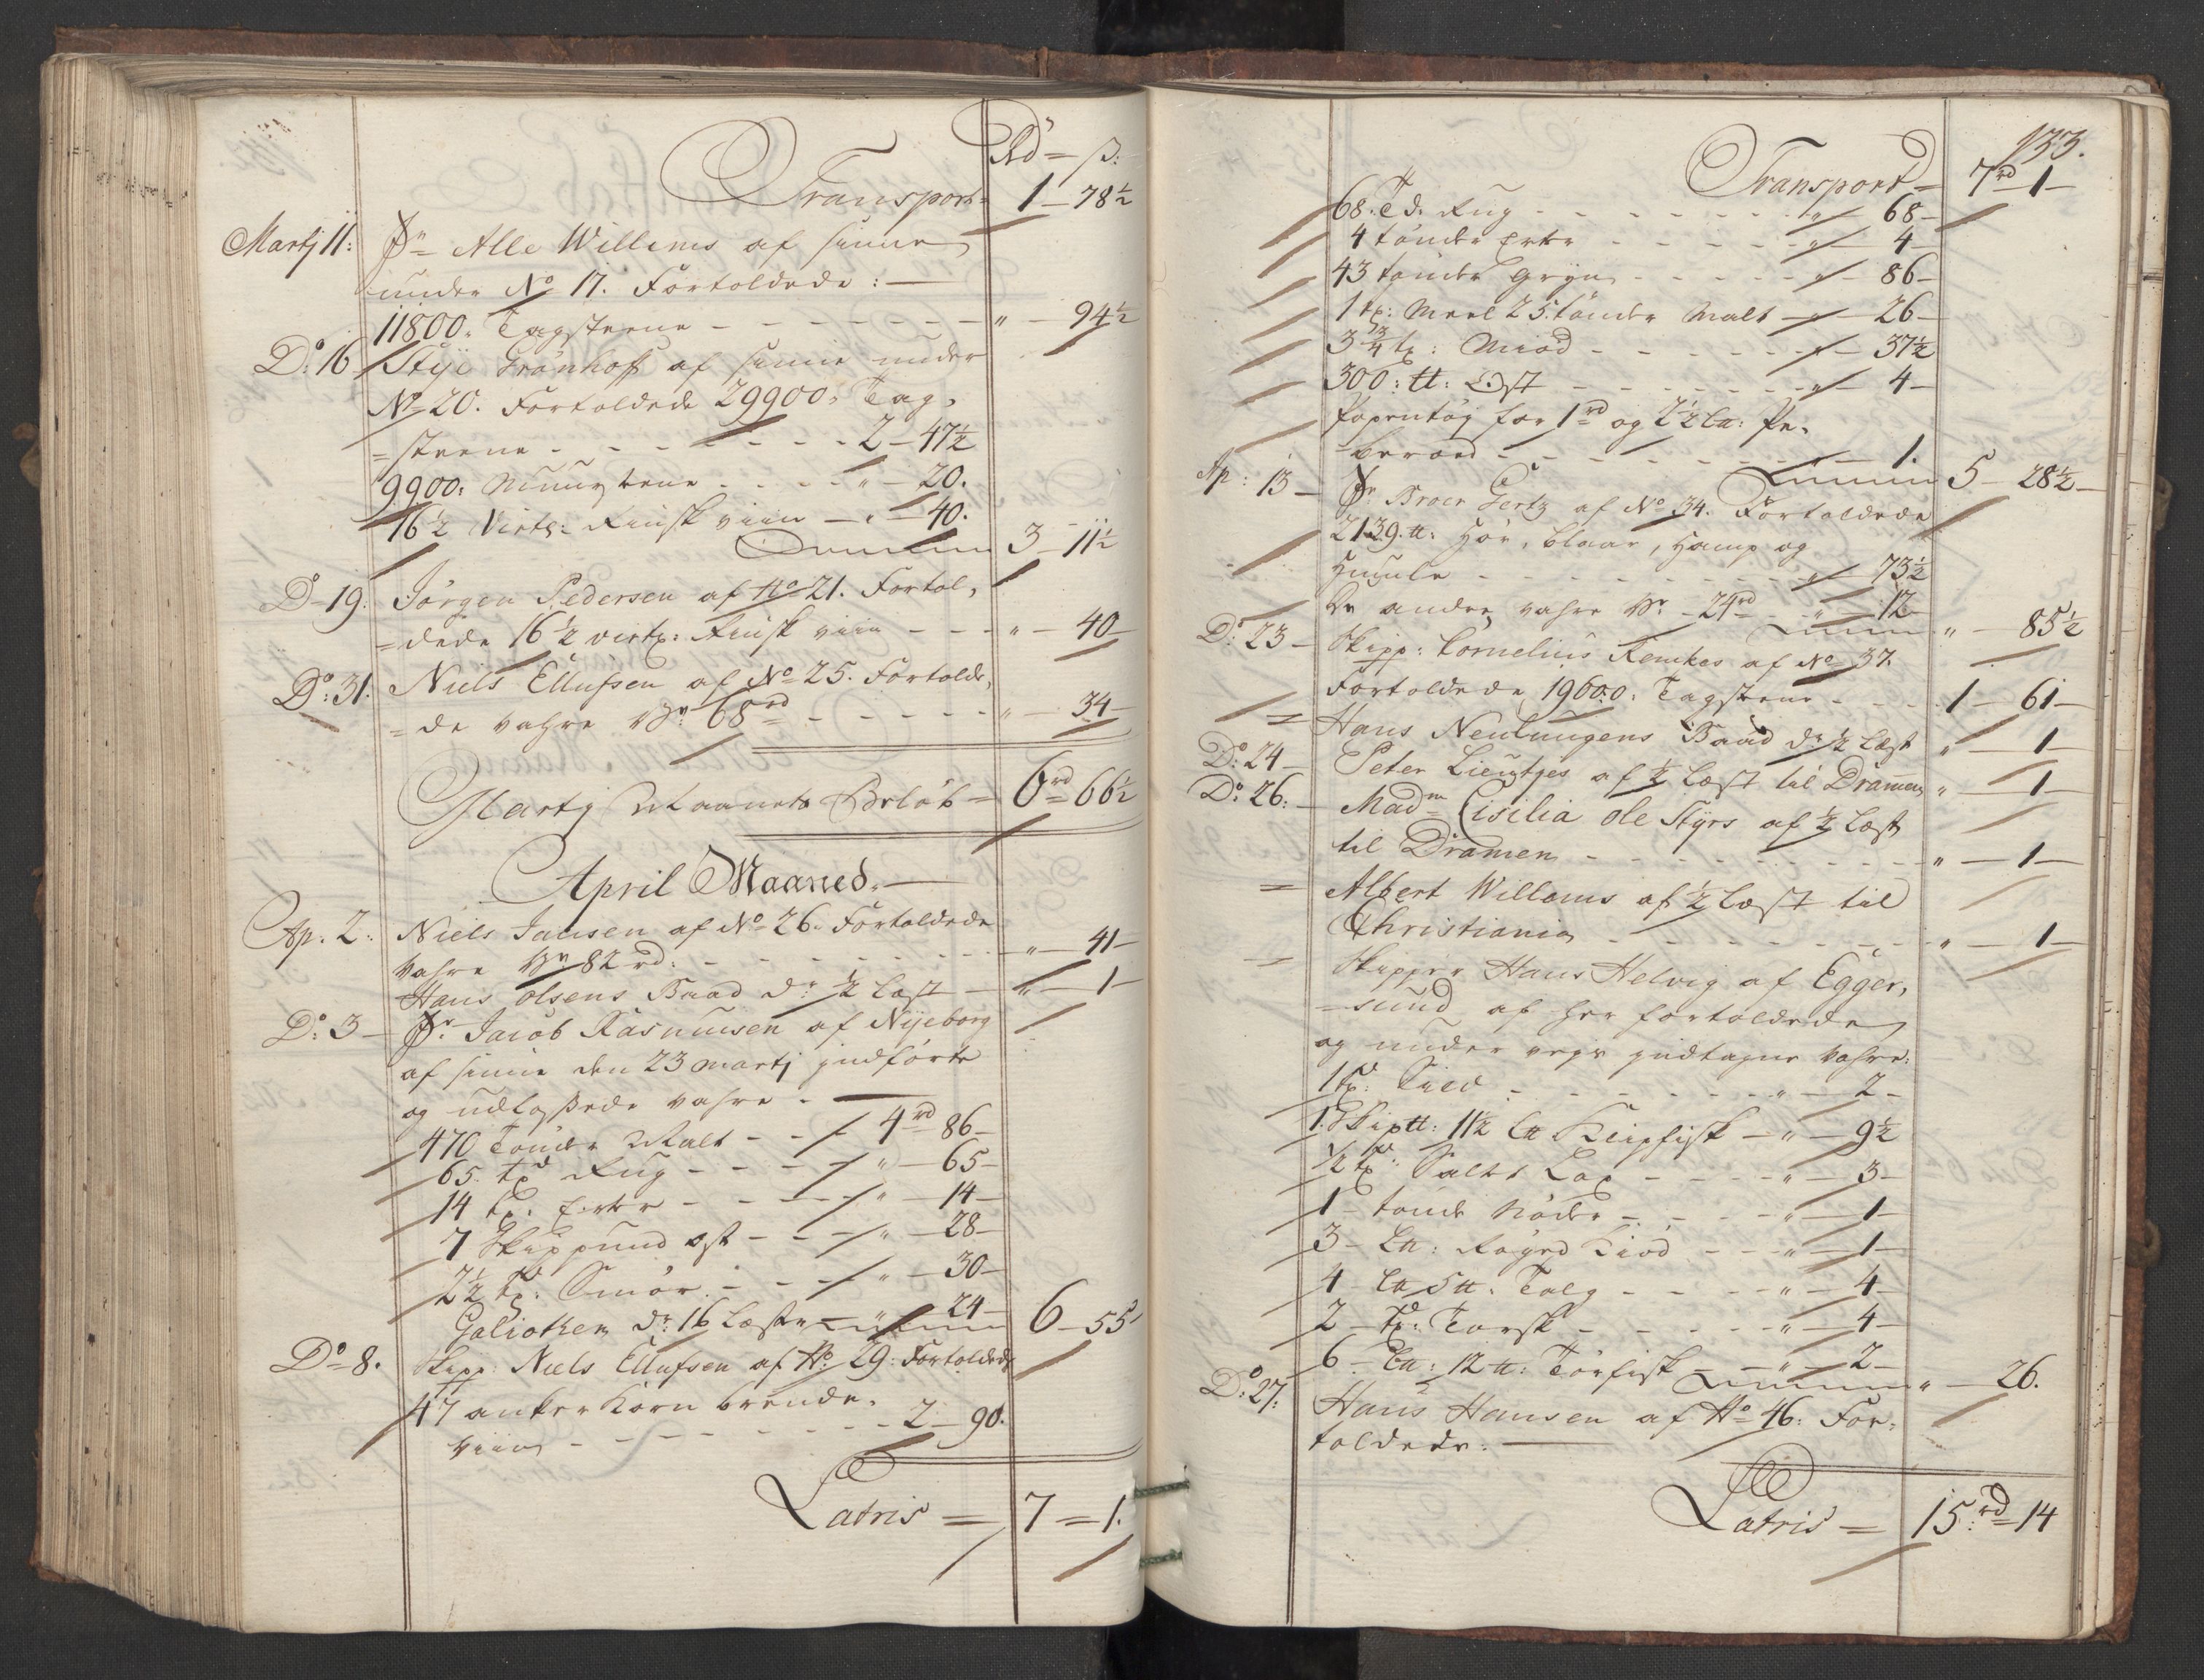 Rd = ß:
Transport = 1 - 78½
Martj 11: Sr Alle Willems af sinne
under No 17. Fortoldede: —
11800: Tagsteene - - - - - " - 94½
Do: 16 Styе Grönhoff af sinne under
No 20. Fortoldede 29900: Tag,
= steene - - - - - 2 - 47½
9900: Muursteene - - - " - 20.
16½ Virtl: Rinsk viin - " - 40.
Summa 3 - 11½
D - 19: Jörgen Pedersen af No 21. Fortol,
= dede 16½ virtl: Rinsk viin - - - " - 40 -
Do: 31. Niels Ellufsen af No 25. Fortolde,
= de vahre for 68 rd - - - - - " - 34 -
Martj Maaneds Beløb = 6 rd = 66½
April Maaned. —
Ap. 2: Niels Jansen af No 26. Fortoldede
Vahre for 82 rd: - - - - - " - 41 -
Hans Olsens Baad dr: ½ Læst - " - 1 -
Do: 3 - Sr Jacob Rasmusen af Nyeborg
af sinne den 23 Martj indförte
og udlossede vahre. —
470 Tönder Malt - - - 4 rd 86 -
65 td Rug - - - - " - 65 -
14 td. Erter - - - - " - 14 -
7 Skippund ost - - - " - 28 -
2½ td: Smör. - - - " - 30 -
Galiothen dr: 16 Læster = " 24 -
Summa 6 - 55
Do = 8. Skipp: Niels Ellufsen af No: 29: Fortoldede
47 anker Korn brende,
viin - - - - - 2 - 90.
Latris = 7 = 1.
133.
Transport = 7 rd 1 -
68. Td. Rug - - - - - " - 68 -
4 tönder Erter - - - - - " - 4 -
43 tönder gryn - - - - - " - 86 -
1 td: Meel 25 tönder Malt - " - 26 -
3¾ td: Miöd - - - - - " - 37½
300: tt: Ost - - - - - " - 4 -
for 1 rd og 2½
- - - - - 1.
Summa 5 - 28½ -
Ap: 13 - Sr Broer Gertz af No 34. Fortoldede
2139. tt: Hör, blaar, Hamp og
Humle - - - - - " - 73½
De andre vahre for 24 rd - " - 12 -
Summa " - 85½
Do: 23 - Skipp: Cornelius Remkes af No 37.
Fortoldede 19600: Tagsteene - - - 1 - 61 -
= Hans Neulungens Baad dr ½ Læst " - 1 -
Do: 24 - Peter Lieutjes af ½ Læst til Dramen " - 1 -
Do: 26: - Madm Cisilia ole Styrs af ½ Læst
til Dramen - - - - - " - 1 -
= Albert Willems af ½ Læst til
Christiania - - - - - " - 1 -
= Skipper Hans Helvig af Egger,
= sund af her fortoldede
og under vegs indtagne vahre:
1 td: Sild - - - - - " - 2 -
1. Skiptt: 11½ Ltt Klipfisk - " - 9½
½ td Saltet Lax - - - - " - 3 -
1 - tönde Nöder - - - - " - 1 -
3 - Ltt: Röget Kiöd - - - " - 1 -
4 - Ltt 5 tt: Talg - - - - " - 4 -
2 - td: Torsk - - - - - " - 4 -
6 - Ltt: 12 tt: Törfisk - - " - 2 -
Summa " - 26.
Do: 27: Hans Hansen af No 46: For,
toldede: —
Latris = 15 rd = 14